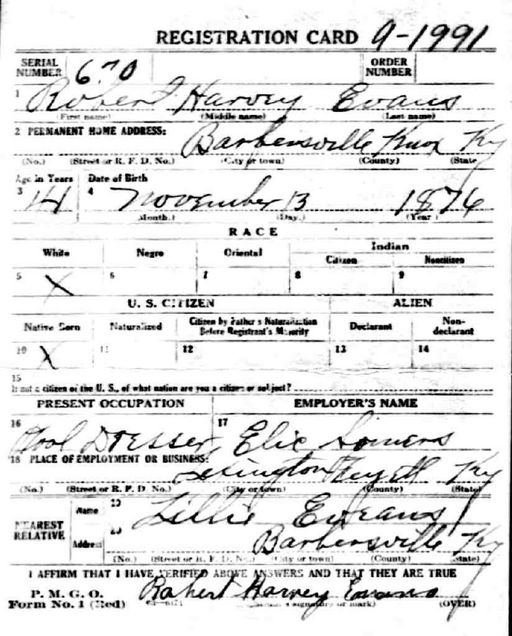 REGISTRATION CARD 9-1991
SERIAL NUMBER 670 ORDER NUMBER
1 Robert Harvey Evans
(First name) (Middle name) (Last name)
2 PERMANENT HOME ADDRESS: Barbersville Knox Ky
(No.) (Street or R. F. D. No.) (City or town) (County) (State)
Age in Years Date of Birth
3 41 4 November 13 1876
(Month.) (Day.) (Year)
RACE
White Negro Oriental Indian
Citizen Noncitizen
5 X 6 7 8 9
U. S. CITIZEN ALIEN
Native Born Naturalized Citizen by Father's Naturalization Before Registrant's Majority Declarant Non-declarant
10 X 11 12 13 14
15
If not a citizen of the U. S., of what nation are you a citizen or subject?
PRESENT OCCUPATION EMPLOYER'S NAME
16 Dresser 17 Somers
18 PLACE OF EMPLOYMENT OR BUSINESS:
Lexington Ky
(No.) (Street or R. F. D. No.) (City or town) (County) (State)
NEAREST RELATIVE Name 19 Lillie Evans
Address 20 Barbersville Ky
(No.) (Street or R. F. D. No.) (City or town) (County) (State)
I AFFIRM THAT I HAVE VERIFIED ABOVE ANSWERS AND THAT THEY ARE TRUE
P. M. G. O.
Form No. 1 (Red) Robert Harvey Evans
(Registrant's signature or mark) (OVER)